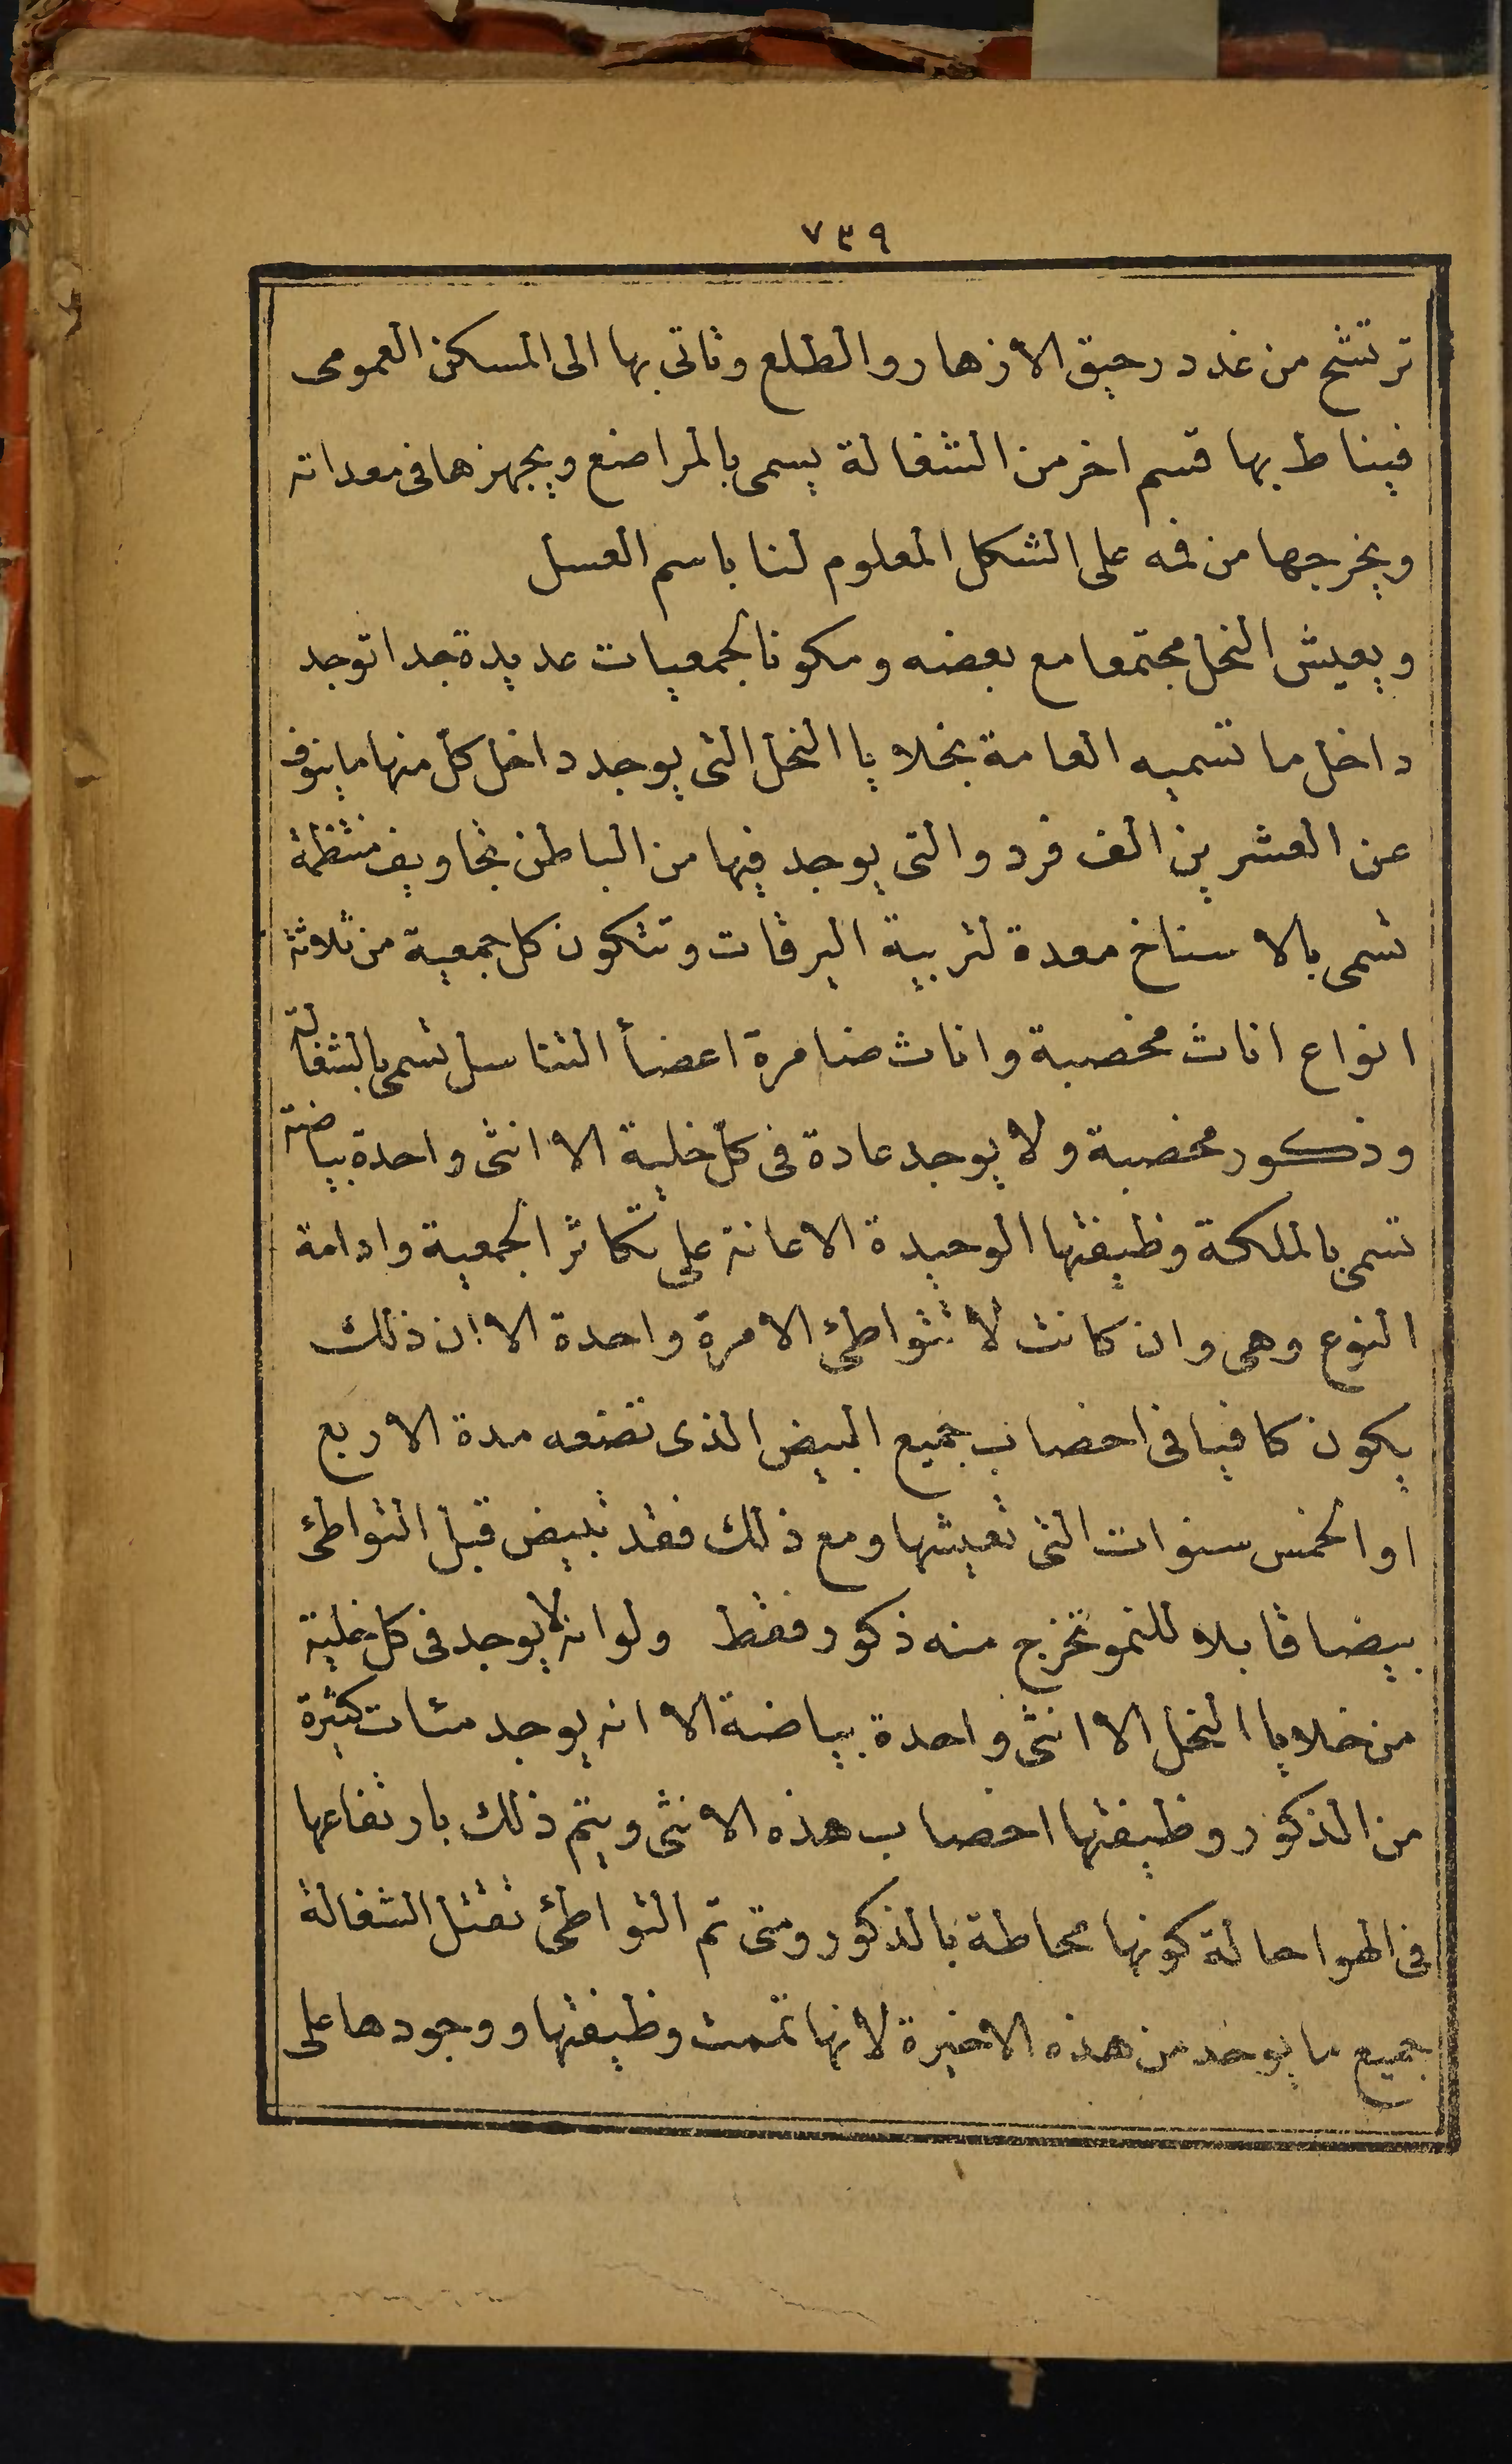 ٧٣٩
ترتشح من غدد رحيق الازهار والطلع وتاتى بها الى المسكن العمومى
فيناط بها قسم اخر من الشغالة يسمى بالمراضع ويجهزها فى معداته
ويخرجها من فمه على الشكل المعلوم لنا باسم العسل
ويعيش النحل مجتمعا مع بعضه ومكونا لجمعيات عديدة جدا توجد
داخل ما تسميه العامة بخلايا النحل التى يوجد داخل كل منها ماينوف
عن العشرين الف فرد والتى يوجد فيها من الباطن تجاويف منتظمة
تسمى بالاسناخ معدة لتربية اليرقات وتتكون كل جمعية من ثلاثة
انواع اناث مخصبة واناث ضامرة اعضأ التناسل تسمى بالشغالة
وذكور مخصبة ولا يوجد عادة فى كل خلية الا انثى واحدة بياضة
تسمى بالملكة وظيفتها الوحيدة الاعانة على تكاثر الجمعية وادامة
النوع وهى وان كانت لا تتواطئ الا مرة واحدة الا ان ذلك
يكون كافيا فى اخصاب جميع البيض الذى تضعه مدة الاربع
او الخمس سنوات التى تعيشها ومع ذلك فقد تبيض قبل التواطئ
بيضا قابلا للنمو تخرج منه ذكور فقط ولو انه لا يوجد فى كل خلية
من خلايا النحل الا انثى واحدة بياضة الا انه يوجد مئات كثيرة
من الذكور وظيفتها اخصاب هذه الانثى ويتم ذلك بارتفاعها
فى الهوا حالة كونها محاطة بالذكور ومتى تم التواطئ تقتل الشغالة
جميع ما يوجد من هذه الاخيرة لانها تممت وظيفتها ووجودها على